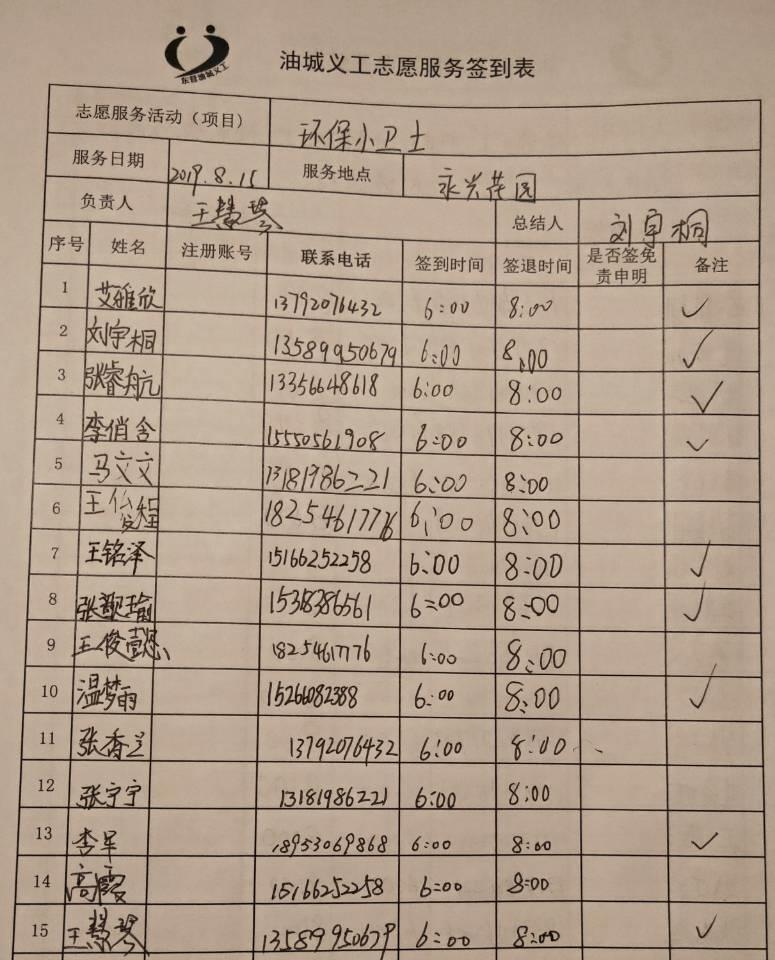 东营油城义工
油城义工志愿服务签到表
志愿服务活动（项目） 环保小卫士
服务日期 2019.8.15 服务地点 永兴花园
负责人 王慧琴 总结人 刘宇桐
序号 姓名 注册账号 联系电话 签到时间 签退时间 是否签免责申明 备注
1 艾雅欣 13792076432 6:00 8:00 ✓
2 刘宇桐 13589950679 6:00 8:00 ✓
3 张睿航 13356648618 6:00 8:00 ✓
4 李俏含 15550561908 6:00 8:00 ✓
5 马文文 13181986221 6:00 8:00
6 王俊程 18254617776 6:00 8:00
7 王铭泽 15166252258 6:00 8:00 ✓
8 张瑜 15318386561 6:00 8:00 ✓
9 王俊懿 18254617776 6:00 8:00
10 温梦雨 15266082388 6:00 8:00 ✓
11 张香兰 13792076432 6:00 8:00
12 张宁宁 13181986221 6:00 8:00
13 李军 18953069868 6:00 8:00 ✓
14 高霞 15166252258 6:00 8:00
15 王慧琴 13589950679 6:00 8:00 ✓